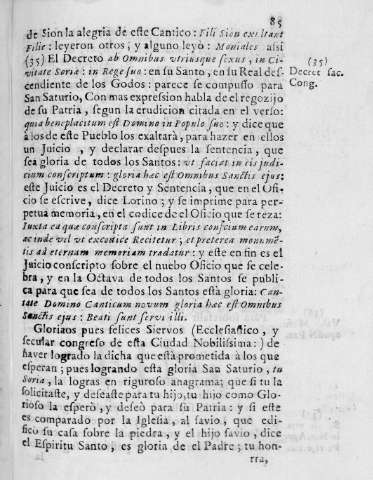 85
de Sion la alegria de este Cantico: Fili Sion exultant
Filie: leyeron otros, y alguno leyò: Moniales asi
(35) El Decreto ab Omnibus utriusque sexus, in Ci-
vitate Soriæ: in Rege suo: en su Santo, en su Real des-
cendiente de los Godos: parece se compusso para
San Saturio, Con mas expression habla de el regozijo
de su Patria, segun la erudicion citada en el verso:
quia beneplacitum est Domino in Populo suo: y dice que
à los de este Pueblo los exaltarà, para hazer en ellos
un Juicio, y declarar despues la sentencia, que
sea gloria de todos los Santos: ut faciat in eis judi-
cium conscriptum: gloria hæc est Omnibus Sanctis ejus:
este Juicio es el Decreto y Sentencia, que en el Ofi-
cio se escrive, dice Lorino; y se imprime para per-
petua memoria, en el codice de el Oficio que se reza:
Iuxta ea quæ conscripta sunt in Libris conscium earum,
ac inde vel ut excodice Recitetur; et preterea monumē-
tis ad eternam memoriam tradatur: y este en fin es el
Juicio conscripto sobre el nuebo Oficio que se cele-
bra, y en la Octava de todos los Santos se publi-
ca para que sea de todos los Santos està gloria: Can-
tate Domino Canticum novum gloria hæc est Omnibus
Sanctis ejus: Beati sunt servi illi.
Gloriaos pues felices Siervos (Ecclesiastico, y
secular congreso de esta Ciudad Nobilissima:) de
haver logrado la dicha que està prometida à los que
esperan; pues logrando esta gloria San Saturio, tu
Soria, la logras en riguroso anagrama; que si tu la
solicitaste, y deseaste para tu hijo, tu hijo como Glo-
rioso la esperò, y deseò para su Patria: y si este
es comparado por la Iglesia, al savio, que edi-
ficò su casa sobre la piedra, y el hijo savio, dice
el Espiritu Santo, es gloria de el Padre; tu hon-
rra,
(35)
Decret sac.
Cong.